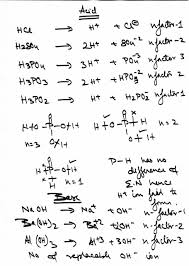 Acid
HCl → H⁺ + Cl⊖ n factor-1
H2SO4 → 2H⁺ + SO4⁻² n factor-2
H3PO4 → 3H⁺ + PO4⁻³ n factor 3
H3PO3 → 2H⁺ + HPO3⁻² n factor-2
H3PO2 → H⁺ + H2PO2⁻ n factor-1
O O
H-O-P-O-H H-O-P-H
O-H O-H
n=3 n=2
O
H-P-O-H n=1
H
P-H has no
difference of
E.N hence
H⁺ in fail to
form.
Base
NaOH → Na⁺ + OH⁻ n-factor-1
Ba(OH)2 → Ba⁺² + 2OH⁻ n-factor-2
Al(OH)3 → Al⁺³ + 3OH⁻ n-factor-3
No of replaceable OH⁻ ion